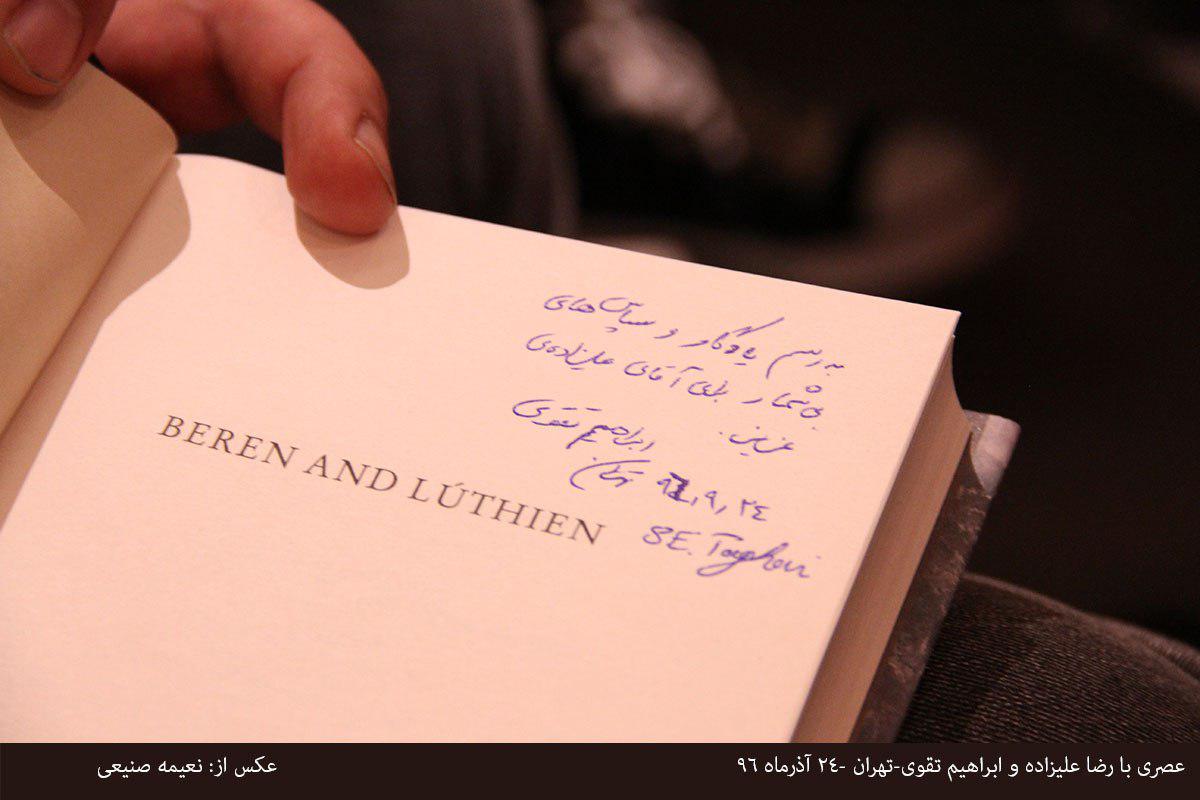 به رسم یادگار و سپاس‌های
بی‌شمار برای آقای علیزاده‌ی
عزیز.
ابراهیم تقوی
۹۶٫۹٫۲٤ تهران
S.E. Taghavi
BEREN AND LÚTHIEN
عصری با رضا علیزاده و ابراهیم تقوی-تهران -۲٤ آذرماه ۹٦
عکس از: نعیمه صنیعی